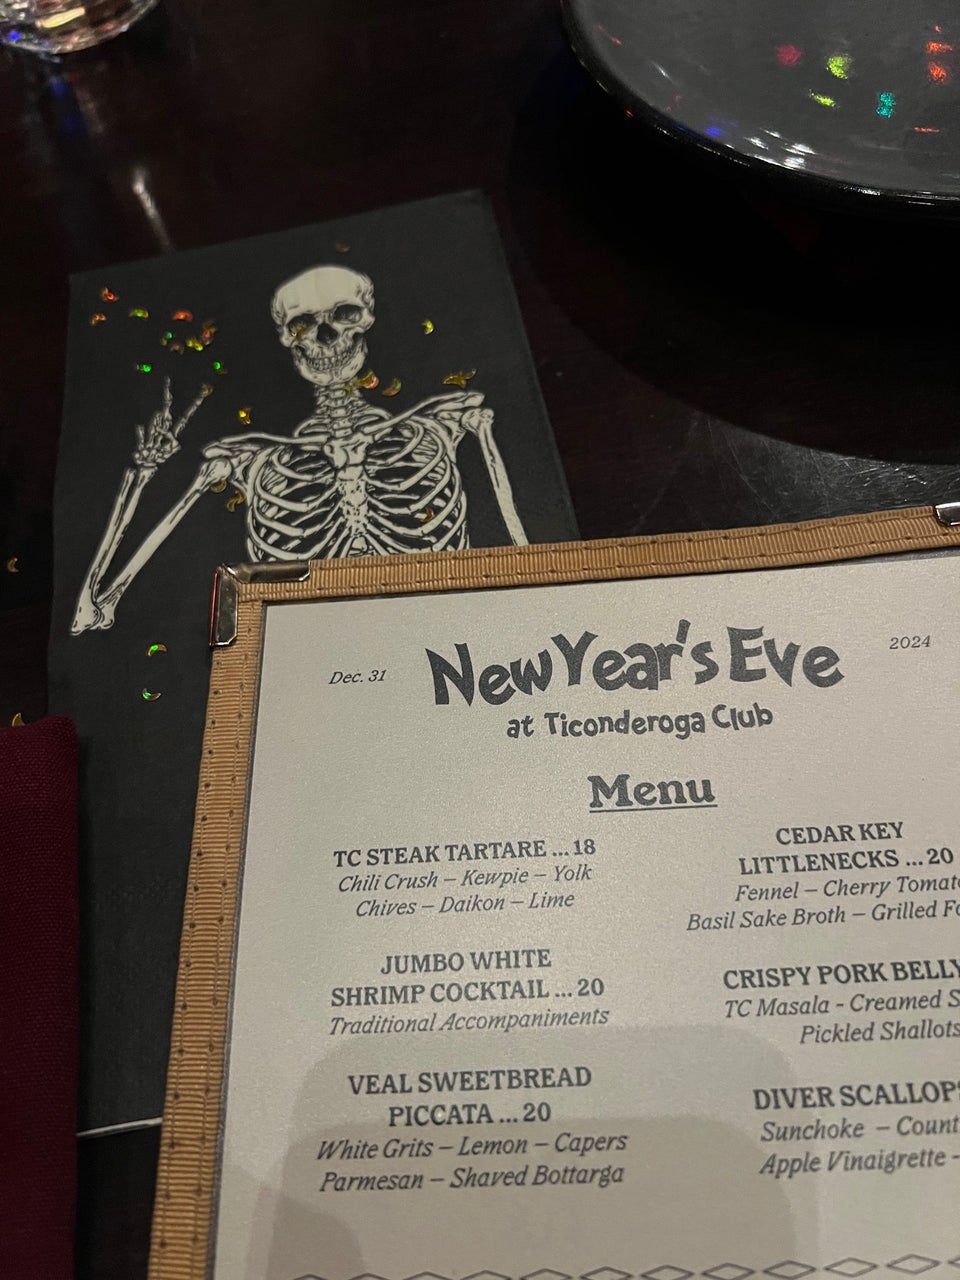 Dec. 31
New Year's Eve
2024
at Ticonderoga Club
Menu
TC STEAK TARTARE ... 18
Chili Crush – Kewpie – Yolk
Chives – Daikon – Lime
JUMBO WHITE
SHRIMP COCKTAIL ... 20
Traditional Accompaniments
VEAL SWEETBREAD
PICCATA ... 20
White Grits – Lemon – Capers
Parmesan – Shaved Bottarga
CEDAR KEY
LITTLENECKS ... 20
Fennel – Cherry
Basil Sake Broth – Grilled
CRISPY PORK BELLY
TC Masala - Creamed
Pickled Shallots
DIVER SCALLOPS
Sunchoke –
Apple Vinaigrette –